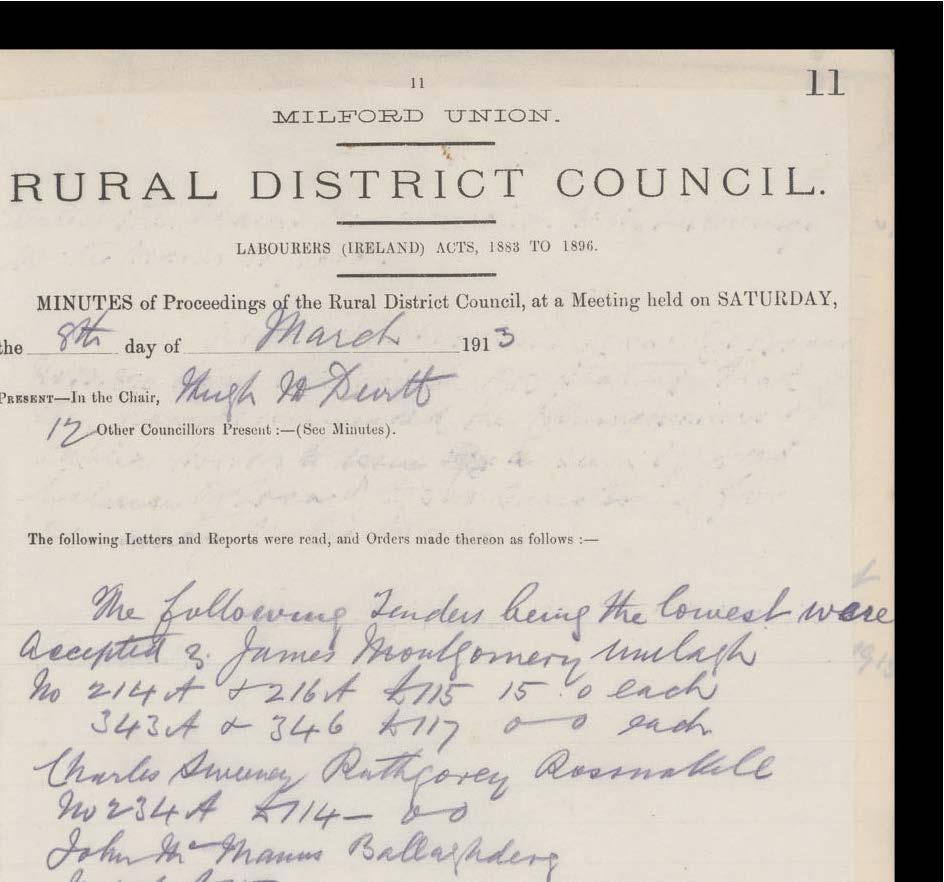 11
11
MILFORD UNION.
RURAL DISTRICT COUNCIL.
LABOURERS (IRELAND) ACTS, 1883 TO 1896.
MINUTES of Proceedings of the Rural District Council, at a Meeting held on SATURDAY,
the 8th day of March 1913
PRESENT—In the Chair, Hugh McDevitt
12 Other Councillors Present :—(See Minutes).
The following Letters and Reports were read, and Orders made thereon as follows :—
The following Tenders being the lowest were
Accepted James Montgomery Umlagh
No 214A & 216A £115 15 . 0 each
343A & 346 £117 0 – 0 each
Charles Sweeney Rathgorey Rossnakill
No 234A £114 – 0 0
John McManus Ballaghderg